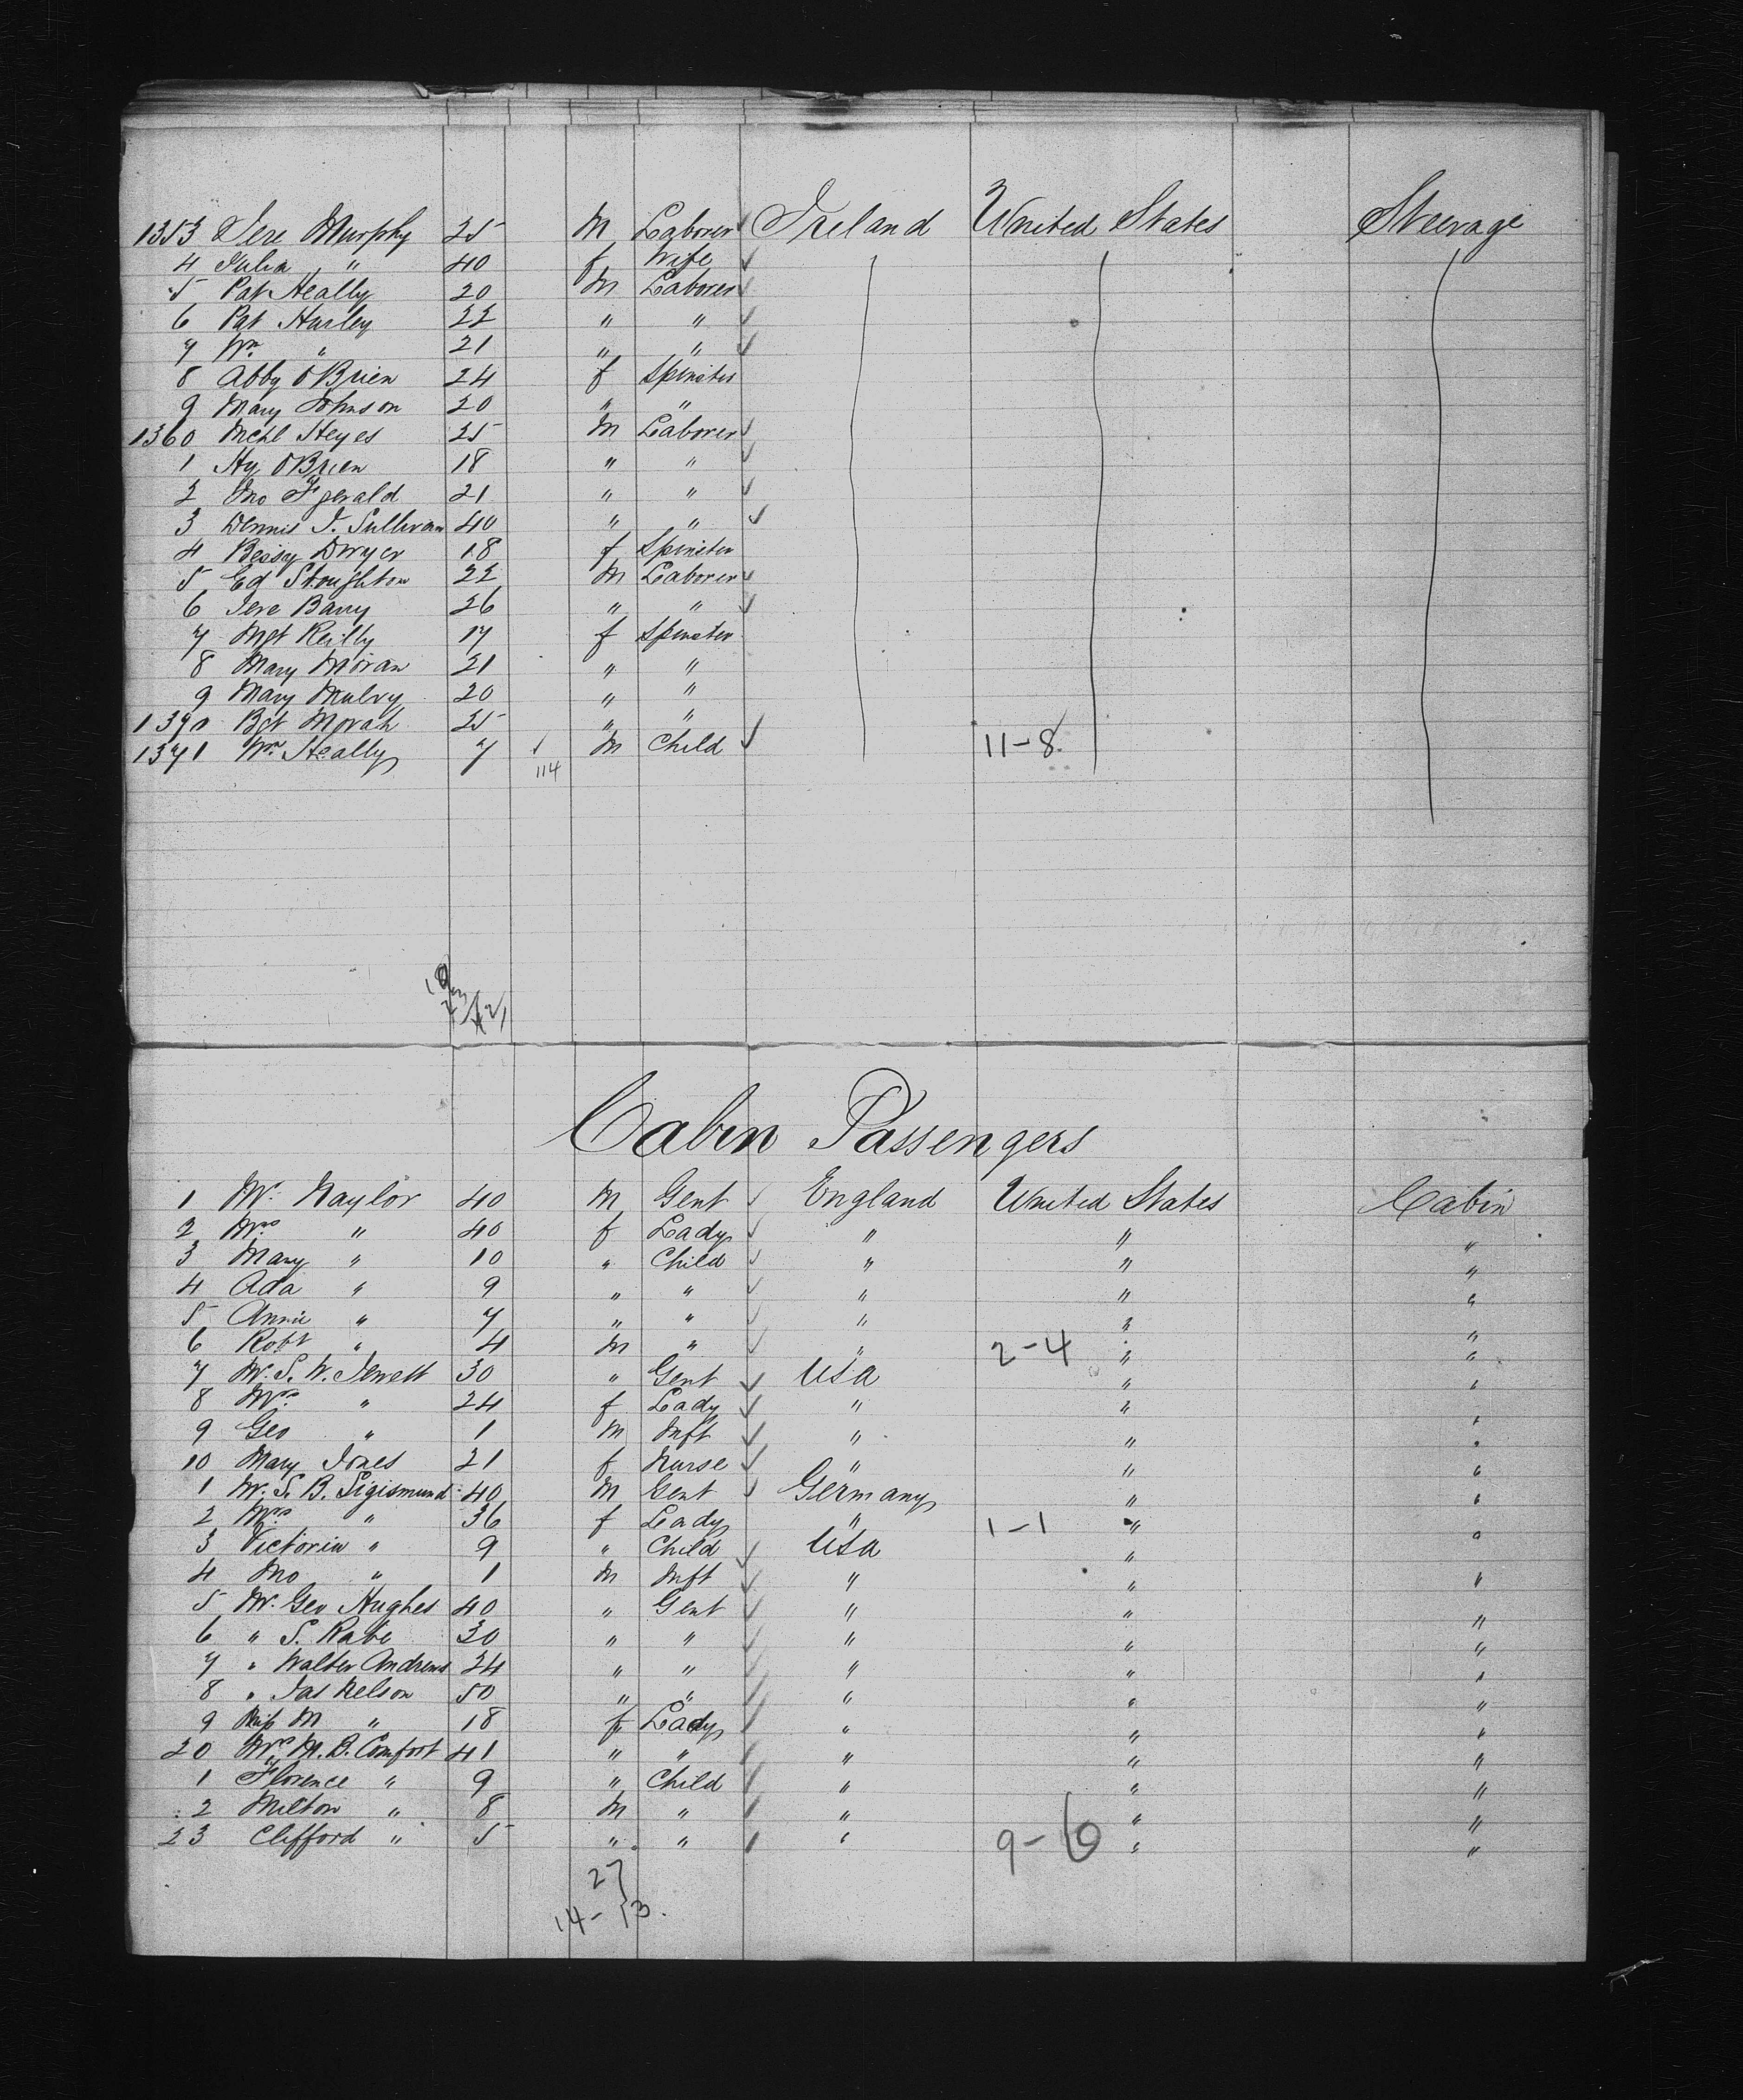 1353 Jere Murphy 25 M Laborer Ireland United States Steerage
4 Julia " 40 f Wife
5 Pat Heally 20 M Laborer
6 Pat Hurley 22 " "
7 Wm " 21 " "
8 Abby O'Brien 24 f Spinster
9 Mary Johnson 20 " "
1360 Mchl Heyes 25 M Laborer
1 Hy O'Brien 18 " "
2 Jno Fgerald 21 " "
3 Dennis J. Sullivan 40 " "
4 Bessy Dwyer 18 f Spinster
5 Ed Stoughton 22 M Laborer
6 Jere Barry 26 " "
7 Mgt Reilly 17 f Spinster
8 Mary Moran 21 " "
9 Mary Mulvy 20 " "
1370 Bgt Morah 25 " "
1371 Wm Heally 7 M Child 11-8
114
Cabin Passengers
1 Mr. Naylor 40 M Gent England United States Cabin
2 Mrs " 40 f Lady " " "
3 Mary " 10 " Child " " "
4 Ada " 9 " " " " "
5 Annie " 7 " " " " "
6 Robt " 4 M " " 2-4 " "
7 Mr. S. W. Jewett 30 " Gent USA " "
8 Mrs " 24 f Lady " " "
9 Geo " 1 M Inft " " "
10 Mary Jones 21 f Nurse " " "
1 Mr. S. B. Sigismund 40 M Gent Germany " "
2 Mrs " 36 f Lady " 1-1 " "
3 Victoria " 9 " Child USA " "
4 Jno " 1 M Inft " " "
5 Mr. Geo Hughes 40 " Gent " " "
6 " S. Rabe 30 " " " " "
7 " Walter Andrews 24 " " " " "
8 " Jas Nelson 50 " " " " "
9 Miss M " 18 f Lady " " "
20 Mrs M. B. Comfort 41 " " " " "
1 Florence " 9 " Child " " "
2 Milton " 8 M " " " "
23 Clifford " 5 " " " 9-6 " "
27
14-13.